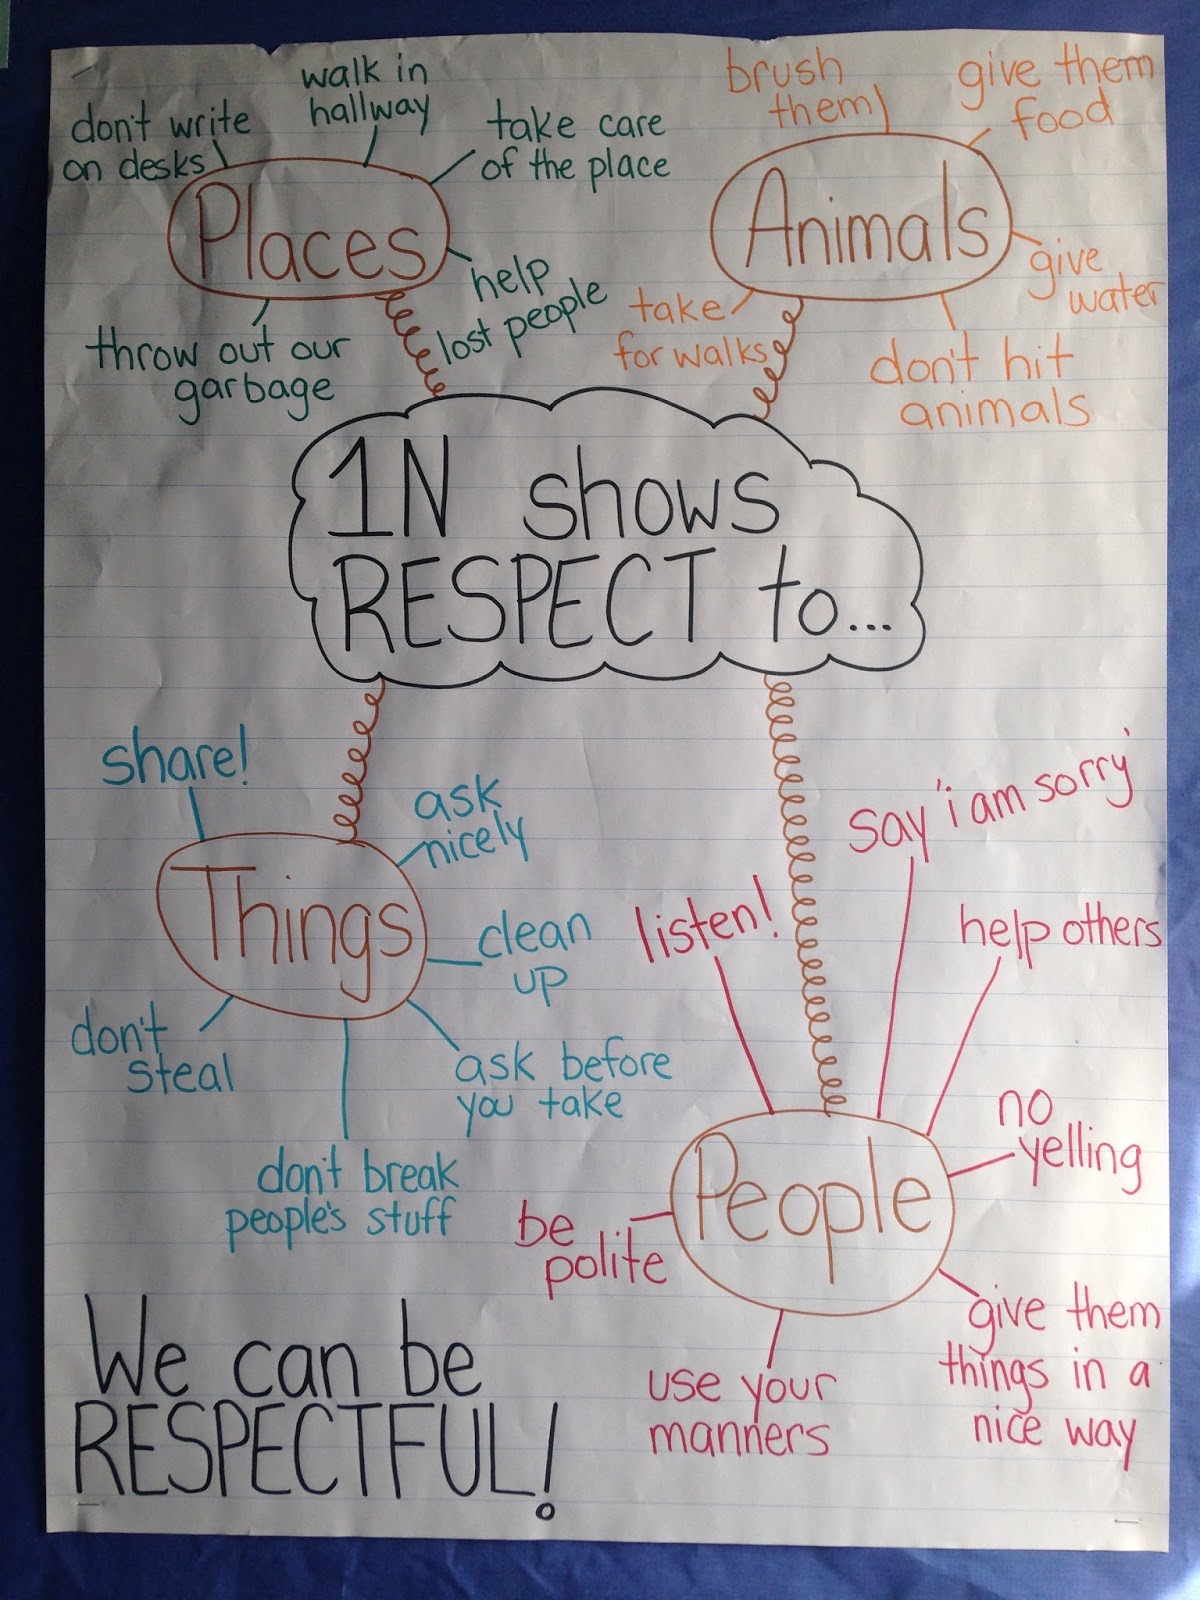 walk in
hallway
don't write
on desks
take care
of the place
Places
help
lost people
throw out our
garbage
brush
them
give them
food
Animals
give
water
take
for walks
don't hit
animals
1N shows
RESPECT to...
share!
ask
nicely
Things
clean
up
don't
steal
ask before
you take
don't break
people's stuff
say 'i am sorry'
listen!
help others
no
yelling
People
be
polite
give them
things in a
nice way
use your
manners
We can be
RESPECTFUL!